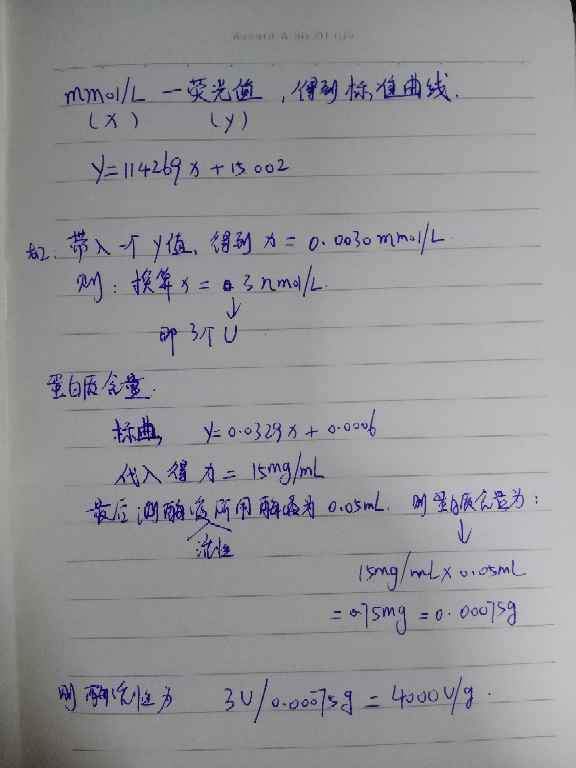 mmol/L — 荧光值，得到标准曲线.
(x) (y)
y=114269x+15.002
如: 带入一个y值, 得到 x = 0.0030 mmol/L.
则: 换算 x = 3 nmol/L.
↓
即 3个U
蛋白质含量.
标曲, y=0.0329x+0.0006
代入得 x = 15mg/mL
最后测酶活所用酶液为 0.05mL. 则蛋白质含量为:
活性
↓
15mg/mL×0.05mL
=0.75mg = 0.00075g
则酶活性为 3U/0.00075g = 4000U/g.